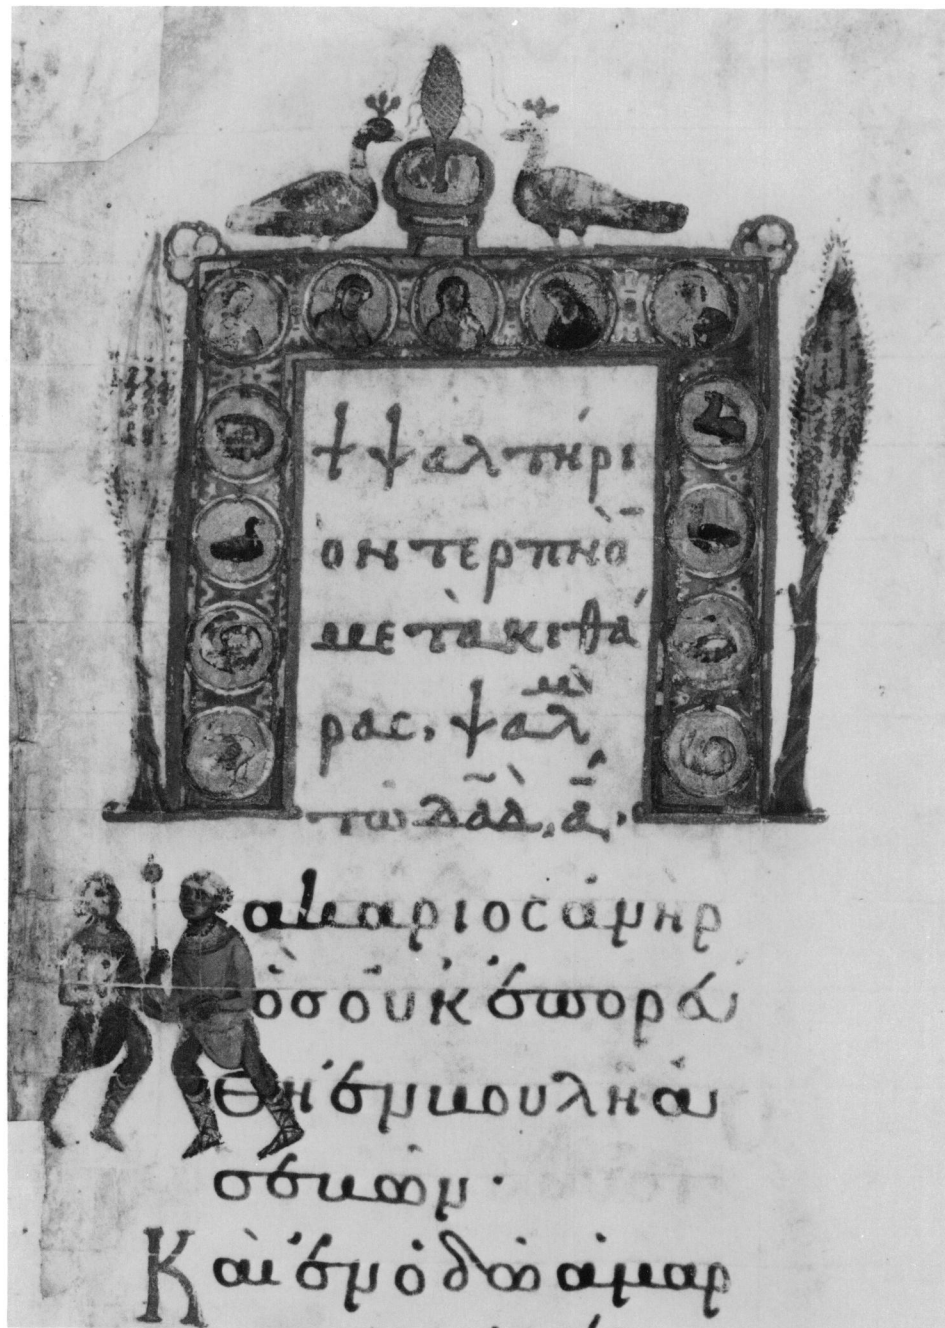 + ψαλτήρι
ον τερπνὸ̅
μετὰ κιθά
ρας, ψαλμ̀
τῶ δα̅δ̀, α̅,·
ακάριος ἀνὴρ
ὃς οὐκ ἐπορεύ
θη ἐν βουλῆ ἀ
σεβῶν·
Καὶ ἐν ὁδῶ ἁμαρ